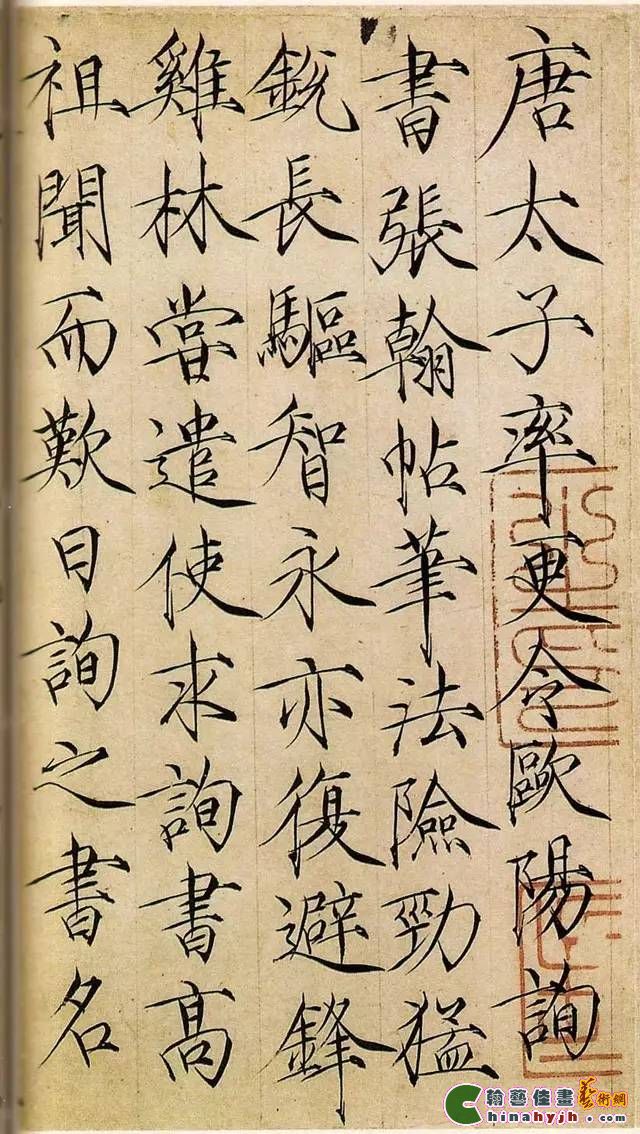 唐太子率更令歐陽詢
書張翰帖筆法險勁猛
銳長驅智永亦復避鋒
雞林嘗遣使求詢書高
祖聞而歎曰詢之書名
翰藝佳畫藝術網
Chinahyjh.com